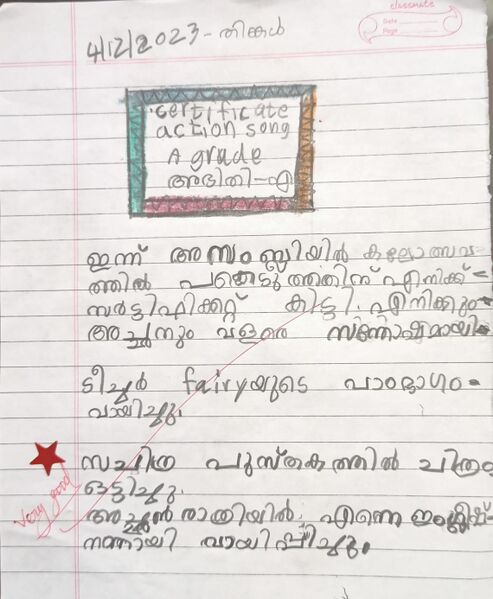 classmate
Date
Page
4/12/2023 - തിങ്കൾ
certificate
action song
A grade
അദിതി-എ
ഇന്ന് അസംബ്ലിയിൽ കലോത്സവ
ത്തിൽ പങ്കെടുത്തതിന് എനിക്ക്
സർട്ടിഫിക്കറ്റ് കിട്ടി. എനിക്കും
അച്ഛനും വളരെ സന്തോഷമായി
ടീച്ചർ fairyയുടെ പാഠഭാഗം
വായിച്ചു.
സചിത്ര പുസ്തകത്തിൽ ചിത്രം
ഒട്ടിച്ചു.
Very good
അച്ഛൻ രാത്രിയിൽ എന്നെ ഇംഗ്ലീഷ്
നന്നായി വായിപ്പിച്ചു.